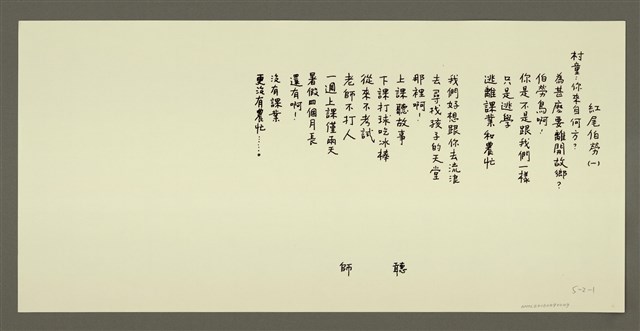 紅尾伯勞(一)
村童:你來自何方?
為甚麼要離開故鄉?
伯勞鳥啊!
你是不是跟我們一樣
只是逃學
逃離課業和農忙
我們好想跟你去流浪
去尋找孩子的天堂
那裡啊!
上課聽故事
下課打球吃冰棒
從來不考試
老師不打人
一週上課僅兩天
暑假四個月長
還有啊!
沒有課業
更沒有農忙……
聽
師
5-2-1